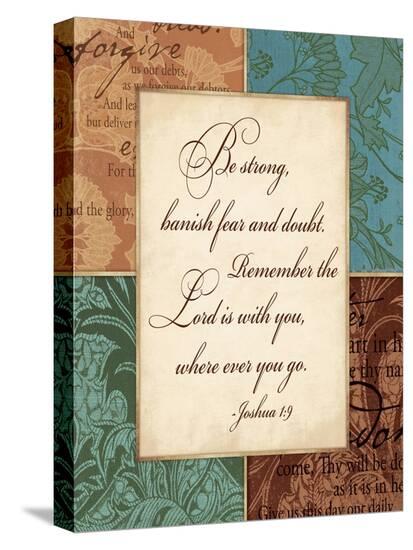 And
forgive
us our debts,
as we forgive our debtors
And lea
but deliver
For th
the
bd the glory,
Be strong,
banish fear and doubt.
Remember the
Lord is with you,
where ever you go.
-Joshua 1:9
art in h
thy na
come, Thy will be do
as it is in he
Give us this day our daily